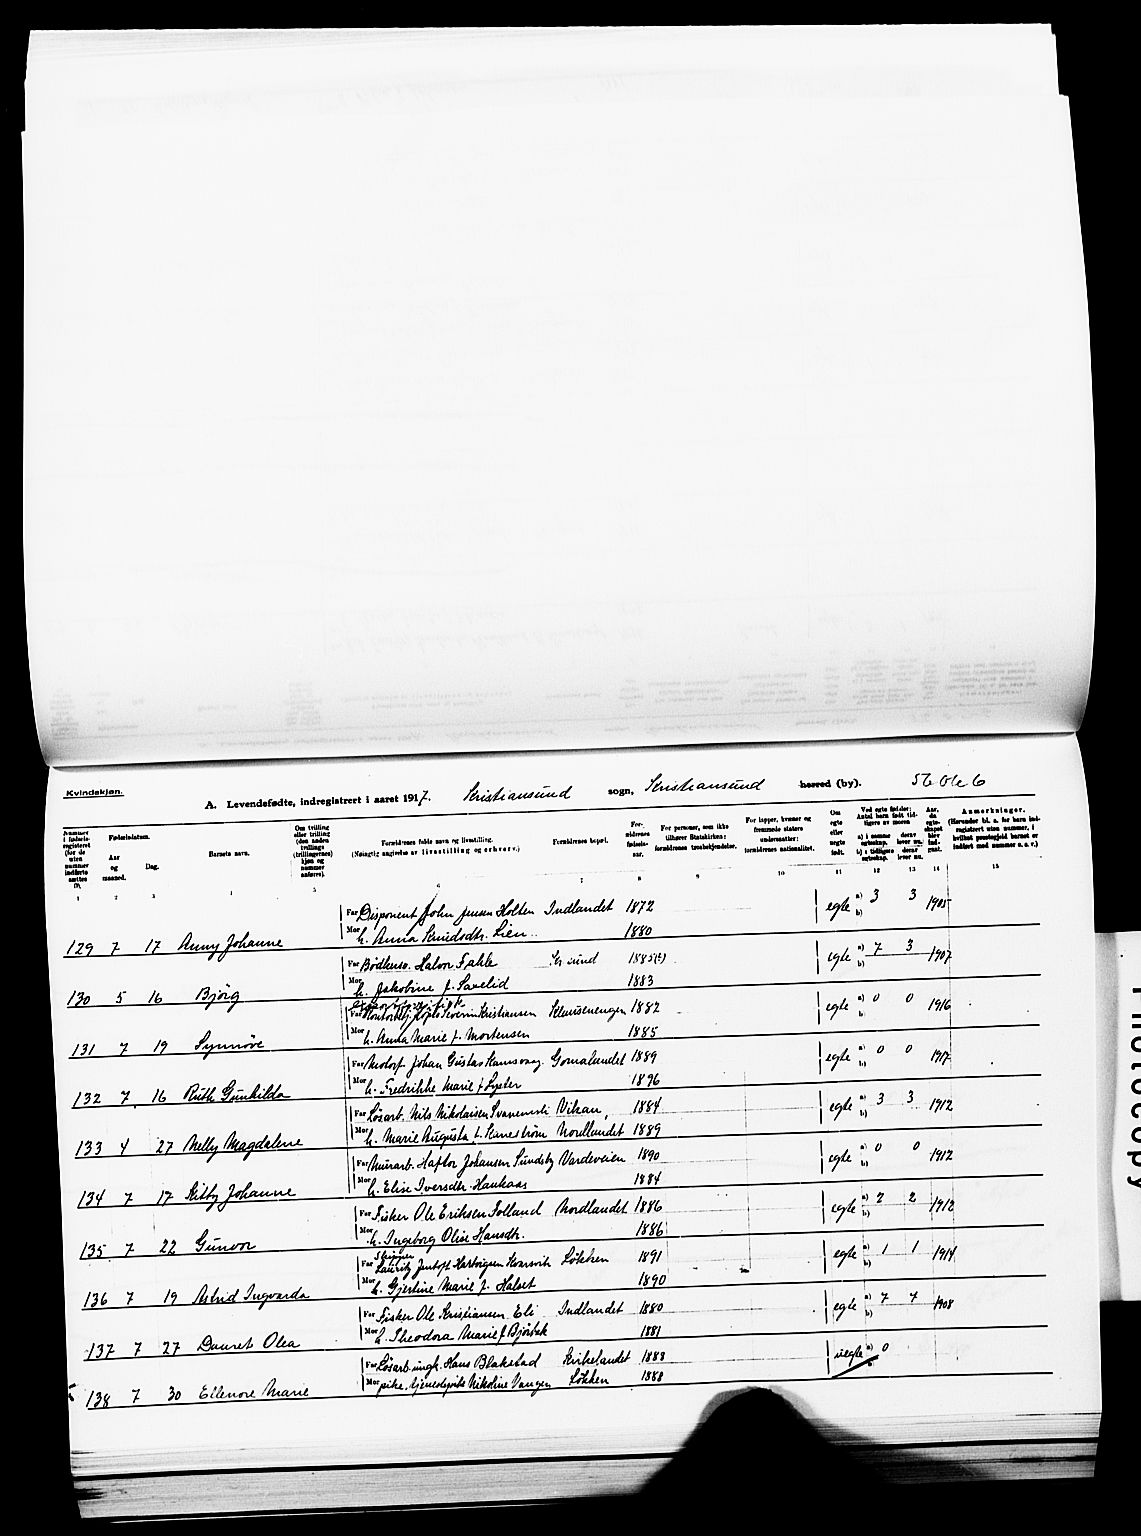 Kvindekjøn.
A. Levendefødte, indregistrert i aaret 1917. Kristiansund sogn, Kristiansund herred (by).
Nummer i fødselsregisteret (for de uten nummer indførte sættes 0).
Fødselsdatum.
Aar og maaned.
Dag.
Barnets navn.
Om tvilling eller trilling (den anden tvillings (trillingernes) kjøn og nummer anføres).
Forældrenes fulde navn og livsstilling.
(Nøiagtig angivelse av livsstilling og erhverv.)
Forældrenes bopæl.
Forældrenes fødselsaar.
For personer, som ikke tilhører Statskirken: forældrenes trosbekjendelse.
For lapper, kvæner og fremmede staters undersaatter: forældrenes nationalitet.
Om egte eller uegte født.
Ved egte fødsler: Antal barn født tidligere av moren
a) i samme egteskap. b) i tidligere egteskap.
derav lever nu. derav lever nu.
Aar, da egteskapet blev indgaat.
Anmerkninger.
(Herunder bl. a. for barn indregistrert uten nummer, i hvilket prestegjeld barnet er indført med nummer o. s. v.)
1 2 3 4 5 6 7 8 9 10 11 12 13 14 15
Far Disponent John Jensen Holten Indlandet 1872 egte a) 3 3 1905
129 7 17 Anny Johanne Mor h. Anna Knudsdtr. Lien 1880 b)
Far Bødkersv. Halvor Fahle Kr.sund 1885 egte a) 7 3 1907
130 5 16 Bjørg Mor h. Jakobine f. Savelid 1883 b)
Far Severin Kristiansen Klausenengen 1882 egte a) 0 0 1916
131 7 19 Synnöve Mor h. Anna Marie f. Mortensen 1885 b)
Far Johan Gustav Gomalandet 1889 egte a) 0 0 1917
132 7 16 Ruth Gunhilda Mor h. Fredrikke Marie f. Lyster 1896 b)
Far Løsarb. Nils Nikolaisen Svanemsli Vikan, 1884 egte a) 3 3 1912
133 4 27 Nelly Magdalene Mor h. Marie Augusta f. Kanestrøm Nordlandet 1889 b)
Far Murarb. Haftor Johansen Sundsby Vardeveien 1890 egte a) 0 0 1912
134 7 17 Kitby Johanne Mor h. Elise Iversdtr. Haukaas 1884 b)
Far Fisker Ole Eriksen Solland Nordlandet 1886 egte a) 2 2 1912
135 7 22 Gunvor Mor h. Ingeborg Olise Hansdtr. 1886 b)
Skipper
Far Lauritz Jentoft Hartvigsen Kvarsvik Løkken 1891 egte a) 1 1 1914
136 7 19 Astrid Ingvarda Mor h. Gjertine Marie f. Halset 1890 b)
Far Fisker Ole Kristiansen Eli Indlandet 1880 egte a) 7 7 1908
137 7 27 Dauret Olea Mor h. Theodora Marie f. Bjørbek 1881 b)
Far Løsarb. ungk. Hans Blakstad Kirkelandet 1888 uegte a) 0
138 7 30 Ellenore Marie Mor pike, Nikoline Vangen Løkken 1888 b)
Photocopy